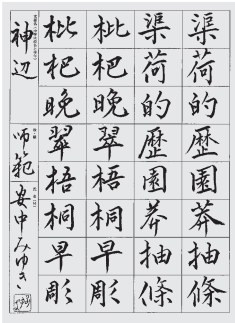 渠荷的歷園莽抽條
渠荷的歷園莽抽條
枇杷晩翠梧桐早彫
枇杷晩翠梧桐早彫
神辺 師範 安中みゆき